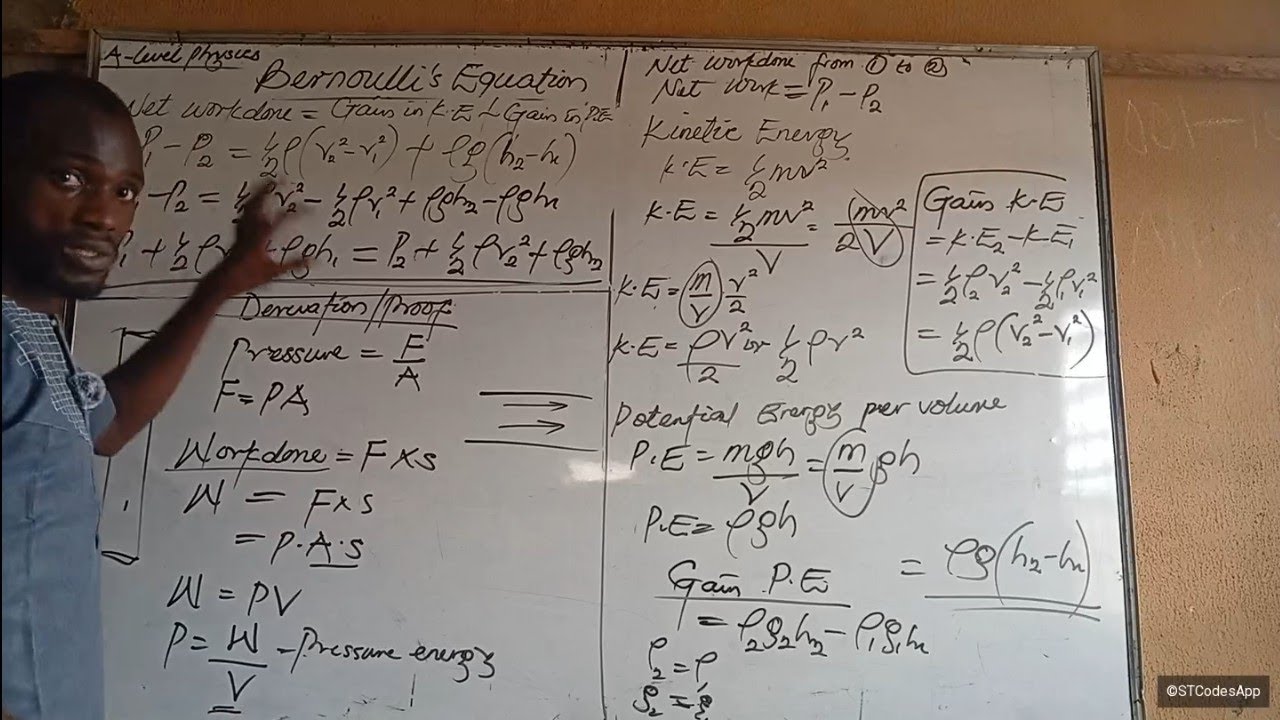 A-level Physics
Bernoulli's Equation
Net workdone = Gain in K.E + Gain in P.E
P₁ - P₂ = ½ρ(v₂² - v₁²) + ρg(h₂ - h₁)
- P₂ = ½ρv₂² - ½ρv₁² + ρgh₂ - ρgh₁
P₁ + ½ρv + ρgh₁ = P₂ + ½ρv₂² + ρgh₂
Derivation/Proof
Pressure = F/A
F = PA
Workdone = F x s
W = F x s
= P.A.s
W = PV
P = W/V - Pressure energy
1
Net workdone from ① to ②
Net work = P₁ - P₂
Kinetic Energy
K.E = ½mv²
K.E = ½mv²/V = mv²/2V
K.E = (m/V) v²/2
K.E = ρv²/2 or ½ρv²
Gain K.E
= K.E₂ - K.E₁
= ½ρ₂v₂² - ½ρ₁v₁²
= ½ρ(v₂² - v₁²)
Potential Energy per volume
P.E = mgh/V = (m/V)gh
P.E = ρgh
Gain P.E
= ρ₂g₂h₂ - ρ₁g₁h₁
= ρg(h₂ - h₁)
ρ₂ = ρ₁
g₂ = g₁
©STCodesApp